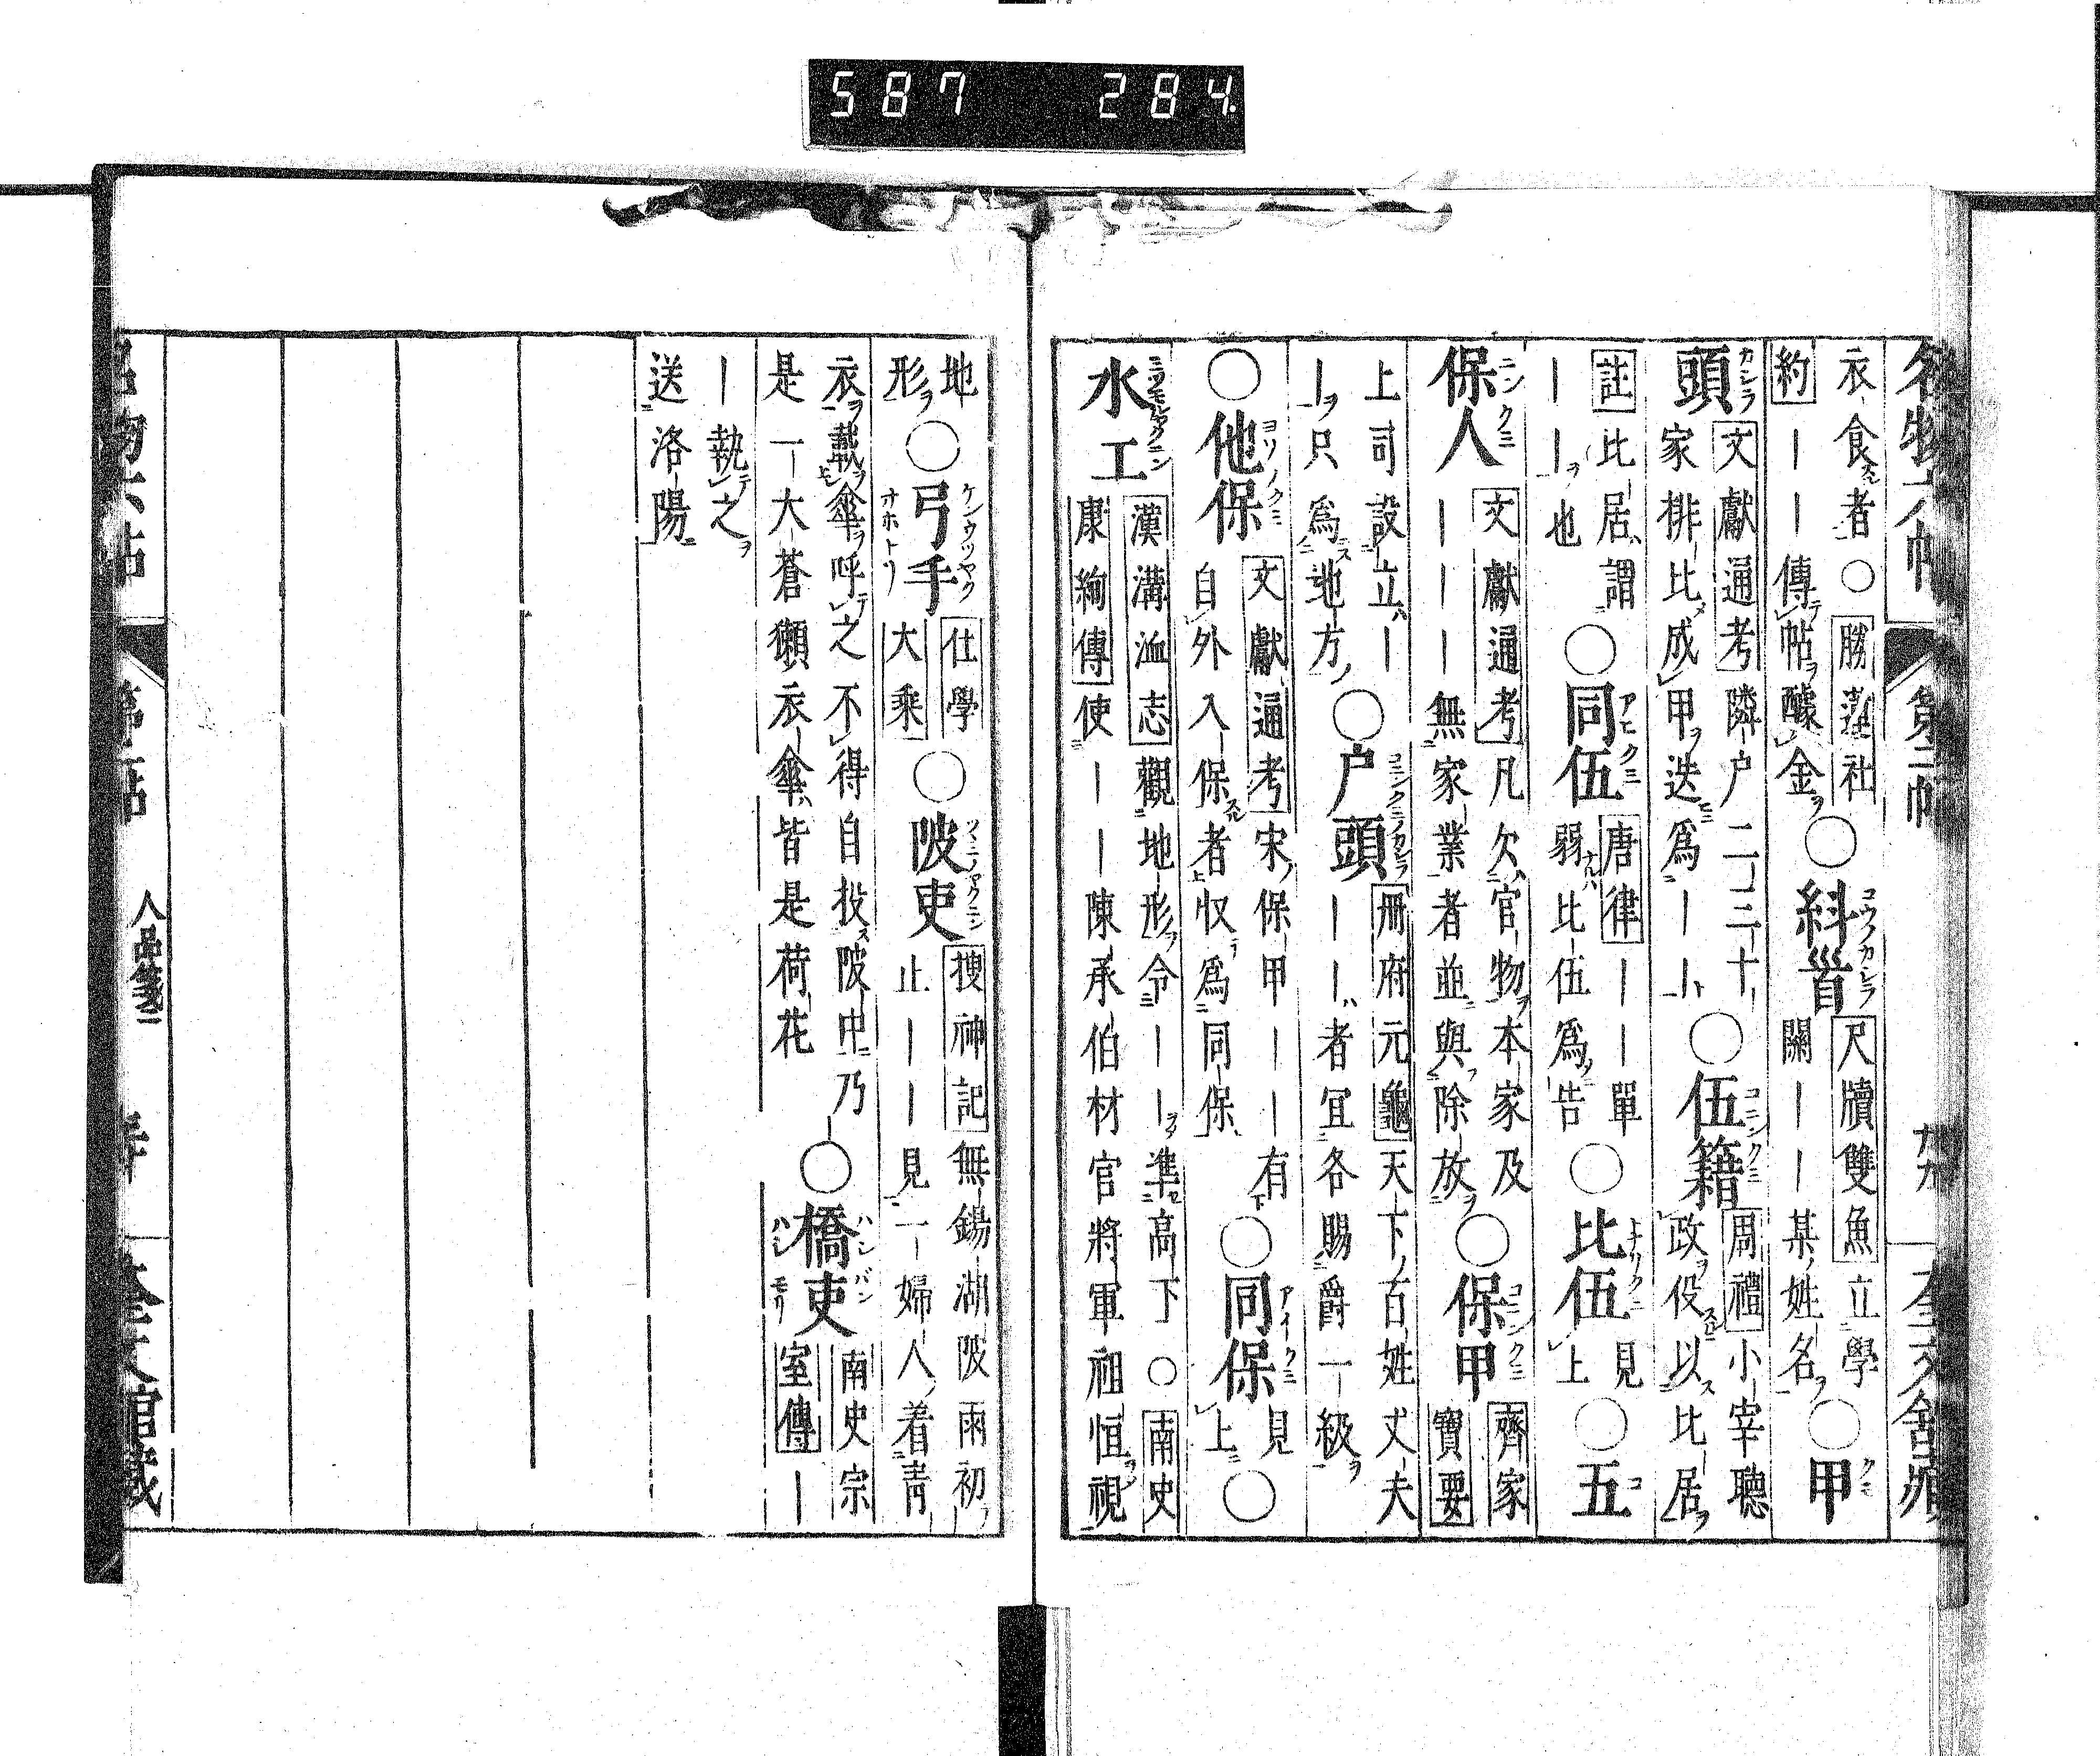 587 284
名物六帖 第二帖
衣食者○勝蓮社
約――傳帖醵金○糾首尺牘雙魚立學
關――某姓名○甲
頭文獻通考隣戸二三十
家排比成甲迭爲――○伍籍周禮小宰聽
政役以比居
註比居謂
――也○同伍唐律――單
弱比伍爲告○比伍見
上○五
保人文獻通考凡欠官物本家及
―――無家業者並與除放○保甲齊家
寶要
上司設立―
―只爲地方○戸頭冊府元龜天下百姓丈夫
――者宜各賜爵一級
○他保文獻通考宋保甲――有
自外入保者収爲同保○同保見
上○
水工漢溝洫志觀地形令――準高下○南史
康絢傳使――陳承伯材官將軍祖恒視
地
形○弓手仕學
大乘○陂吏搜神記無錫湖陂雨初
止――見一婦人着靑
衣戴傘呼之不得自投陂中乃
是一大蒼獺衣傘皆是荷花○橋吏南史宗
室傳―
―執之
送洛陽
人品箋二